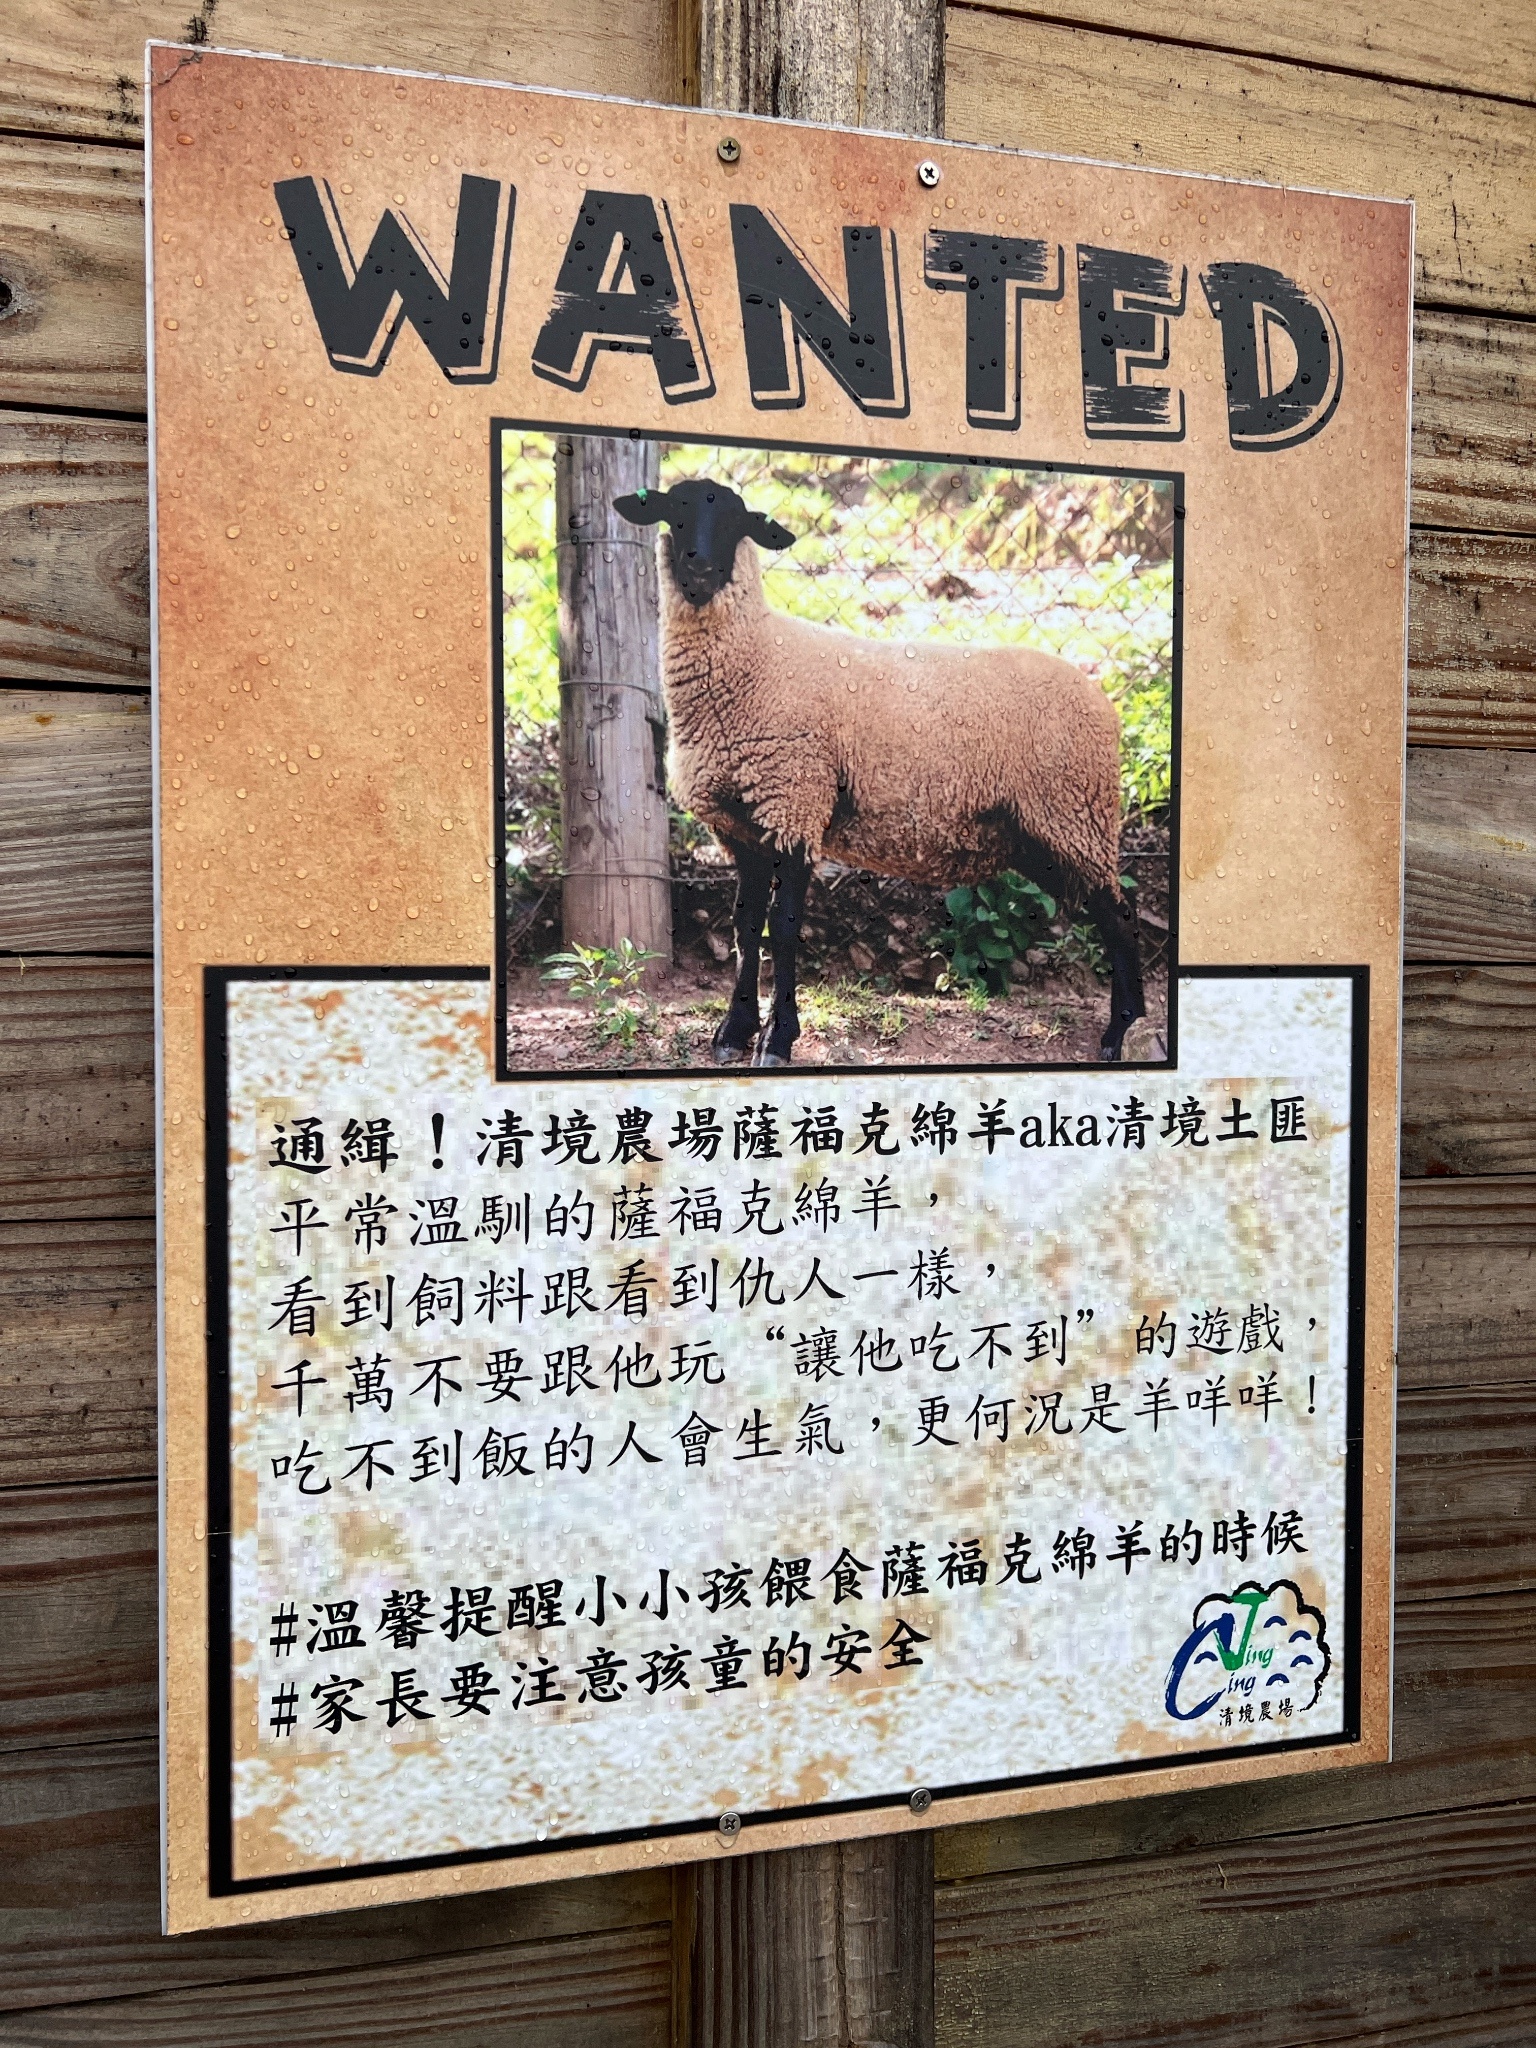 WANTED
通緝！清境農場薩福克綿羊aka清境土匪
平常溫馴的薩福克綿羊，
看到飼料跟看到仇人一樣，
千萬不要跟他玩“讓他吃不到”的遊戲，
吃不到飯的人會生氣，更何況是羊咩咩！
#溫馨提醒小小孩餵食薩福克綿羊的時候
#家長要注意孩童的安全
Cing Jing
清境農場